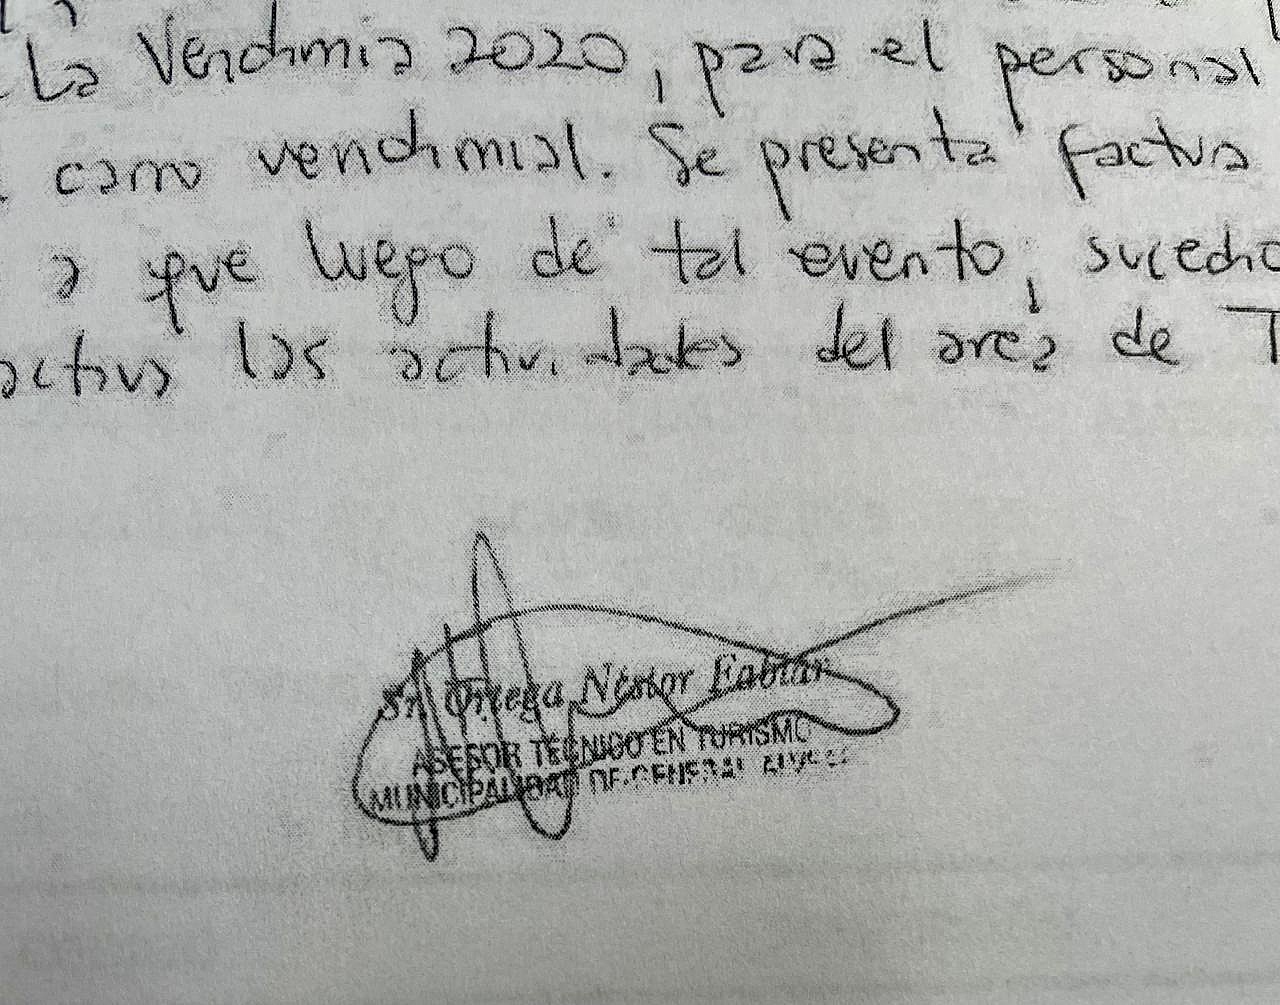 La Vendimia 2020, para el personal
carro vendimial. Se presenta factura
a que luego de tal evento, sucedio
las actividades del area de T
Sr. Ortega Néstor Fabián
ASESOR TECNICO EN TURISMO
MUNICIPALIDAD DE GENERAL